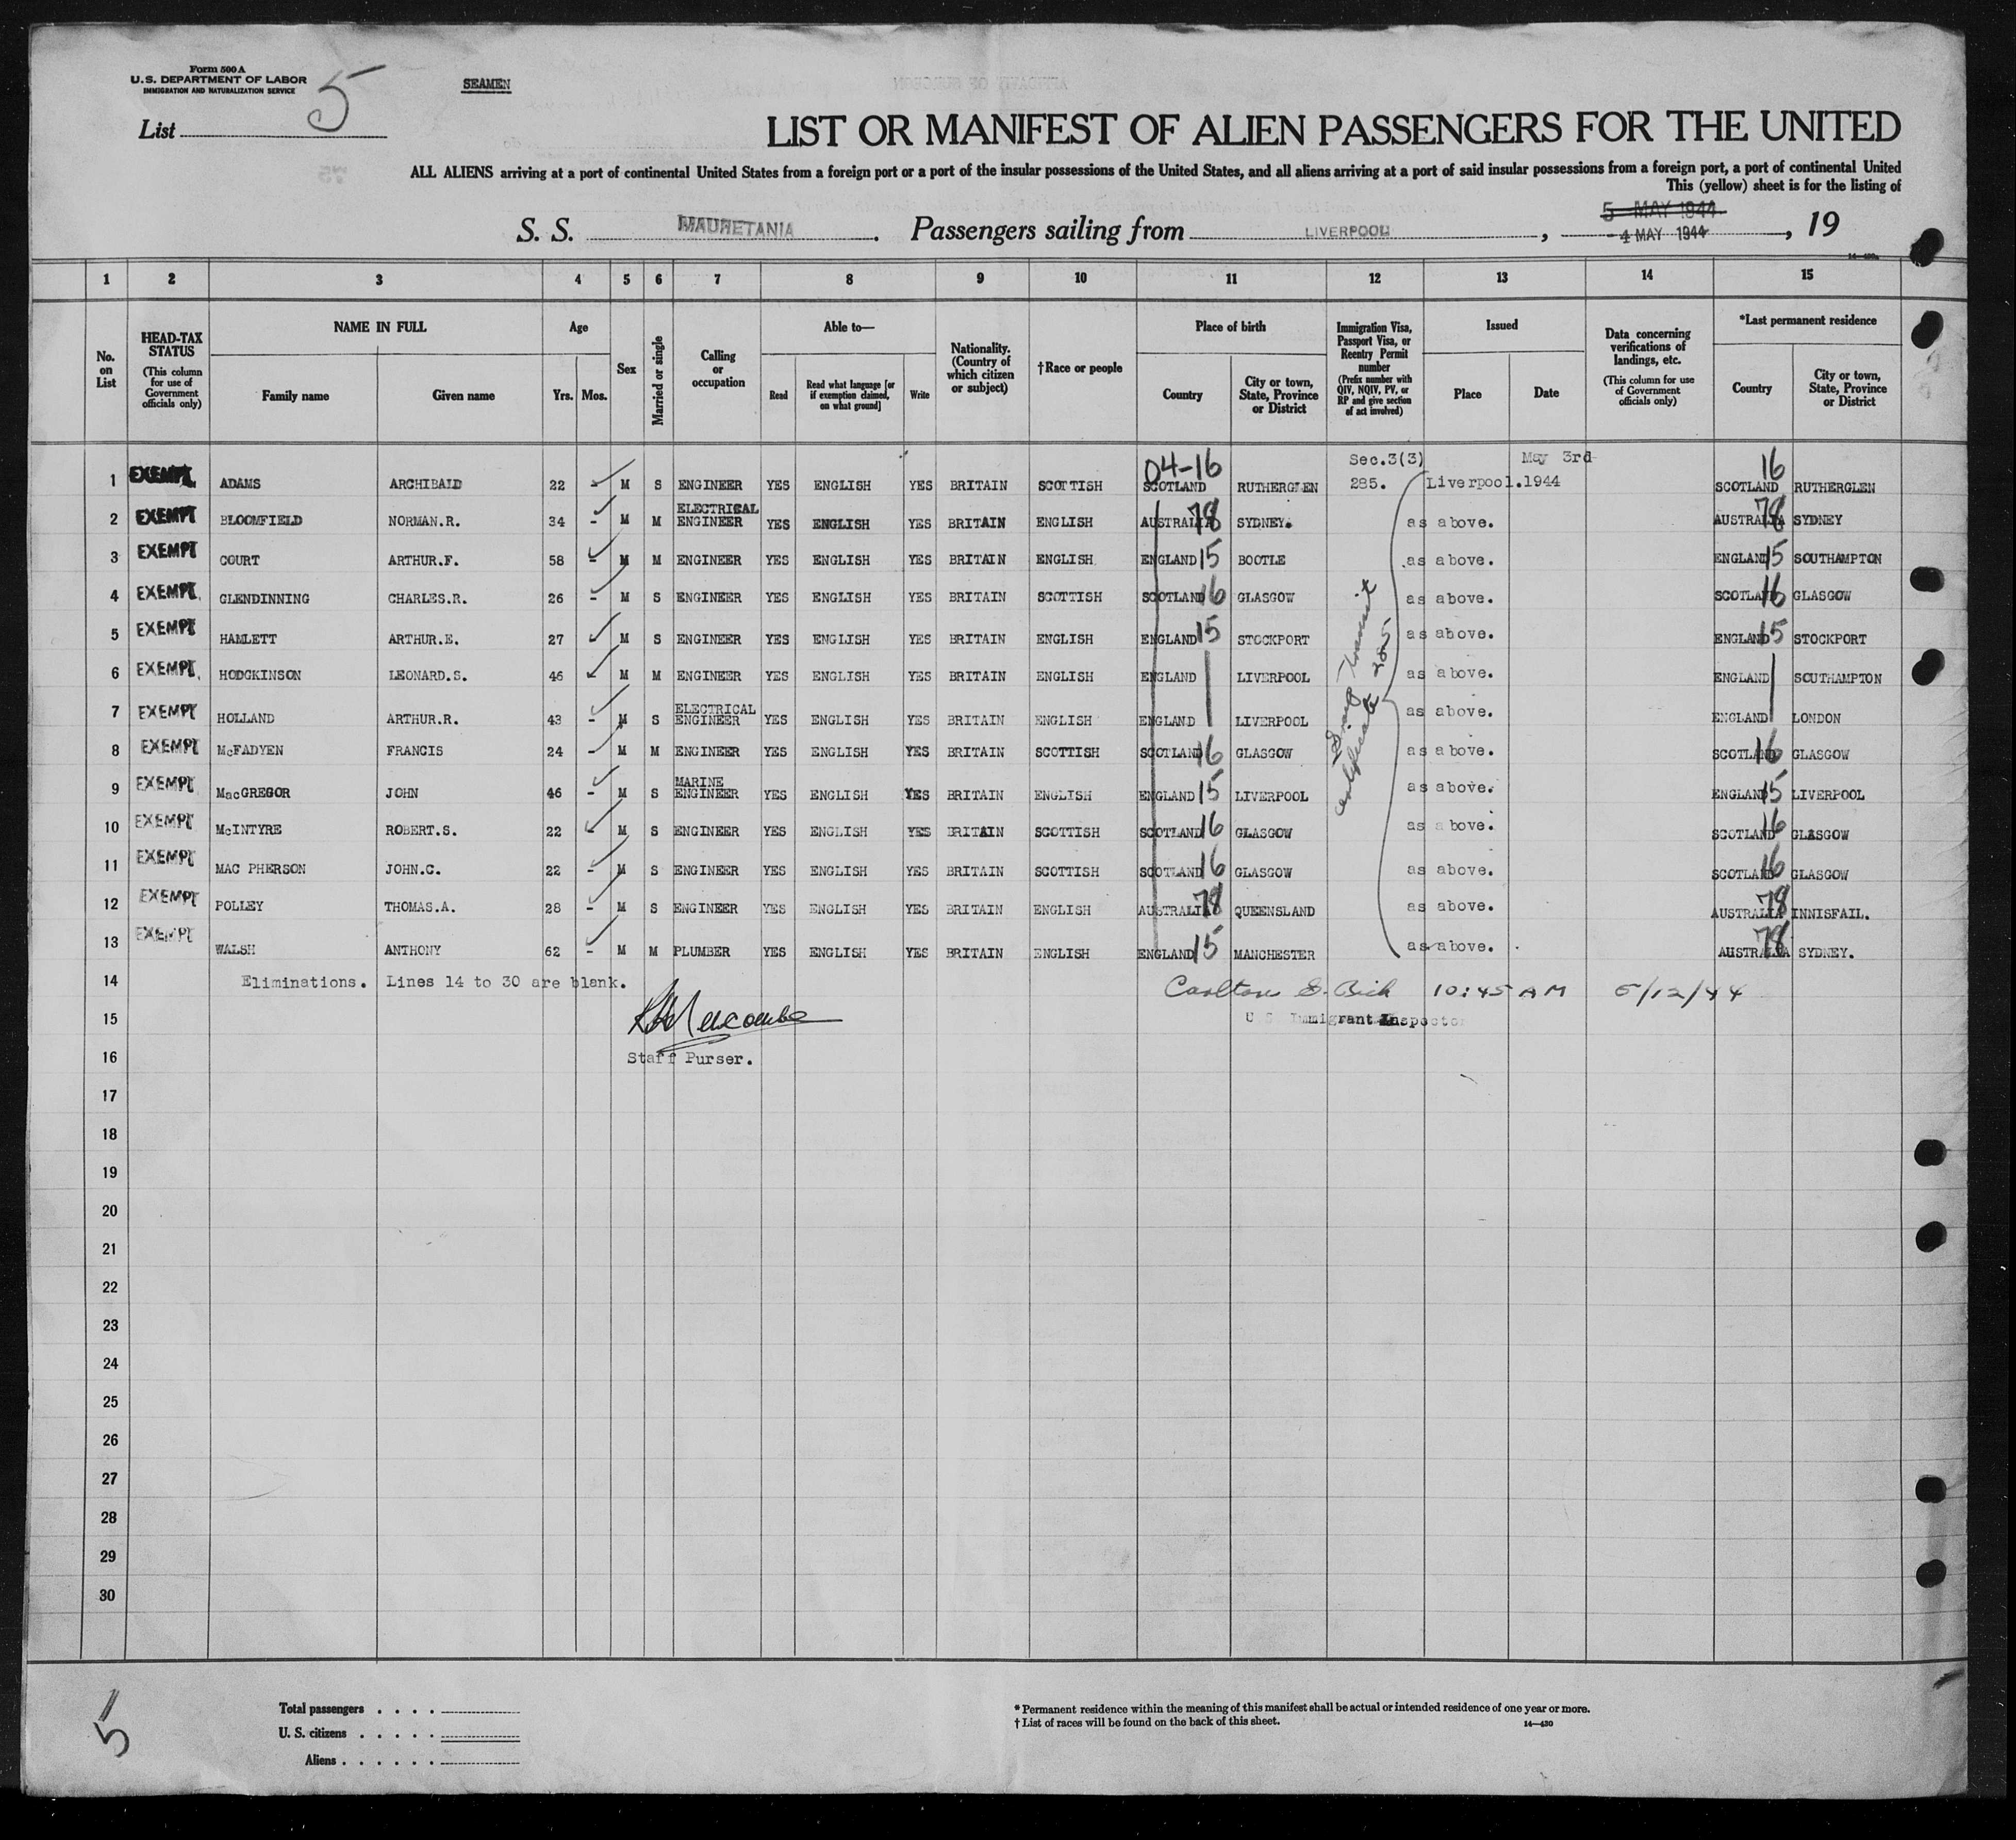 Form 500 A
U.S. DEPARTMENT OF LABOR
IMMIGRATION AND NATURALIZATION SERVICE
SEAMEN
List 5
LIST OR MANIFEST OF ALIEN PASSENGERS FOR THE UNITED
ALL ALIENS arriving at a port of continental United States from a foreign port or a port of the insular possessions of the United States, and all aliens arriving at a port of said insular possessions from a foreign port, a port of continental United
This (yellow) sheet is for the listing of
5 MAY 1944
S. S. MAURETANIA. Passengers sailing from LIVERPOOL, 4 MAY 1944, 19
14—430
1 2 3 4 5 6 7 8 9 10 11 12 13 14 15
No. on List
HEAD-TAX STATUS (This column for use of Government officials only)
NAME IN FULL Family name Given name
Age Yrs. Mos.
Sex
Married or single
Calling or occupation
Able to— Read Read what language [or if exemption claimed, on what ground] Write
Nationality. (Country of which citizen or subject)
†Race or people
Place of birth Country City or town, State, Province or District
Immigration Visa, Passport Visa, or Reentry Permit number (Prefix number with QIV, NQIV, PV, or RP and give section of act involved)
Issued Place Date
Data concerning verifications of landings, etc. (This column for use of Government officials only)
*Last permanent residence Country City or town, State, Province or District
04-16 Sec.3(3) May 3rd 16
1 EXEMPT ADAMS ARCHIBALD 22 - M S ENGINEER YES ENGLISH YES BRITAIN SCOTTISH SCOTLAND RUTHERGLEN 285. Liverpool.1944 SCOTLAND RUTHERGLEN
2 EXEMPT BLOOMFIELD NORMAN.R. 34 - M M ELECTRICAL ENGINEER YES ENGLISH YES BRITAIN ENGLISH AUSTRALIA 78 SYDNEY. as above. AUSTRALIA 78 SYDNEY
3 EXEMPT COURT ARTHUR.F. 58 - M M ENGINEER YES ENGLISH YES BRITAIN ENGLISH ENGLAND 15 BOOTLE as above. ENGLAND 15 SOUTHAMPTON
4 EXEMPT GLENDINNING CHARLES.R. 26 - M S ENGINEER YES ENGLISH YES BRITAIN SCOTTISH SCOTLAND 16 GLASGOW as above. SCOTLAND 16 GLASGOW
5 EXEMPT HAMLETT ARTHUR.E. 27 - M S ENGINEER YES ENGLISH YES BRITAIN ENGLISH ENGLAND 15 STOCKPORT as above. ENGLAND 15 STOCKPORT
6 EXEMPT HODGKINSON LEONARD.S. 46 - M M ENGINEER YES ENGLISH YES BRITAIN ENGLISH ENGLAND LIVERPOOL as above. ENGLAND SOUTHAMPTON
7 EXEMPT HOLLAND ARTHUR.R. 43 - M S ELECTRICAL ENGINEER YES ENGLISH YES BRITAIN ENGLISH ENGLAND LIVERPOOL as above. ENGLAND LONDON
8 EXEMPT McFADYEN FRANCIS 24 - M M ENGINEER YES ENGLISH YES BRITAIN SCOTTISH SCOTLAND 16 GLASGOW as above. SCOTLAND 16 GLASGOW
9 EXEMPT MacGREGOR JOHN 46 - M S MARINE ENGINEER YES ENGLISH YES BRITAIN ENGLISH ENGLAND 15 LIVERPOOL as above. ENGLAND 15 LIVERPOOL
10 EXEMPT McINTYRE ROBERT.S. 22 - M S ENGINEER YES ENGLISH YES BRITAIN SCOTTISH SCOTLAND 16 GLASGOW as above. SCOTLAND 16 GLASGOW
11 EXEMPT MAC PHERSON JOHN.C. 22 - M S ENGINEER YES ENGLISH YES BRITAIN SCOTTISH SCOTLAND 16 GLASGOW as above. SCOTLAND 16 GLASGOW
12 EXEMPT POLLEY THOMAS.A. 28 - M S ENGINEER YES ENGLISH YES BRITAIN ENGLISH AUSTRALIA 78 QUEENSLAND as above. AUSTRALIA 78 INNISFAIL.
13 EXEMPT WALSH ANTHONY 62 - M M PLUMBER YES ENGLISH YES BRITAIN ENGLISH ENGLAND 15 MANCHESTER as above. AUSTRALIA 78 SYDNEY.
Transit certificate 285
14 Eliminations. Lines 14 to 30 are blank. Carlton 10:45 AM 5/12/44
15 U S Immigrant Inspector
16 Staff Purser.
17
18
19
20
21
22
23
24
25
26
27
28
29
30
5
Total passengers . . . .
U. S. citizens . . . . .
Aliens . . . . . .
* Permanent residence within the meaning of this manifest shall be actual or intended residence of one year or more.
† List of races will be found on the back of this sheet.
14—430